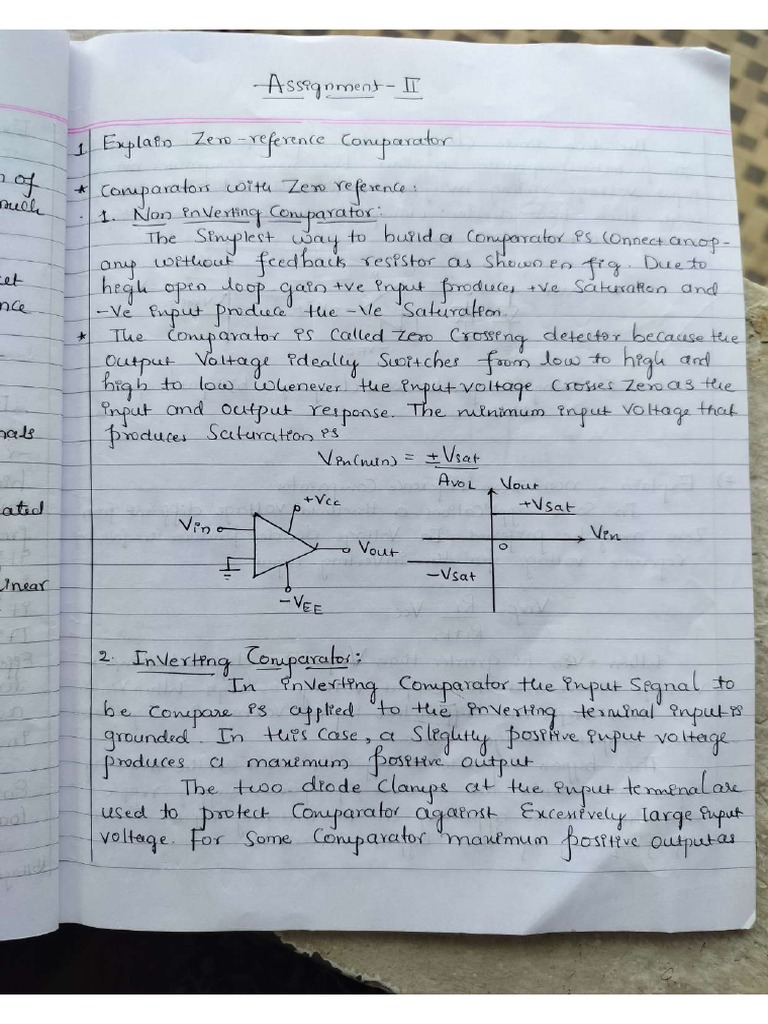 Assignment - II
1 Explain Zero-reference Comparator
* Comparators with Zero reference:
1. Non inverting Comparator:
The Simplest way to build a comparator is connect an op-
amp without feedback resistor as shown en fig. Due to
hegh open loop gain +ve input produces +ve Saturation and
-Ve input produce the -Ve Saturation.
* The Comparator is called Zero Crossing detector because the
output Voltage ideally Switches from low to high and
high to low whenever the input voltage Crosses Zero as the
input and output response. The minimum input voltage that
produces Saturation is
Vin(min) = ±Vsat
AVOL
Vout
+Vsat
Vin
0
-Vsat
+Vcc
Vin
Vout
-VEE
2. Inverting Comparator:
In inverting Comparator the input Signal to
be compare is applied to the inverting terminal input is
grounded. In this case, a Slightly positive input voltage
produces a maximum positive output
The two diode Clamps at the input terminal are
used to protect Comparator against Excensively large input
voltage. For Some Comparator maximum positive output as
n of
much
nce
nals
ated
inear